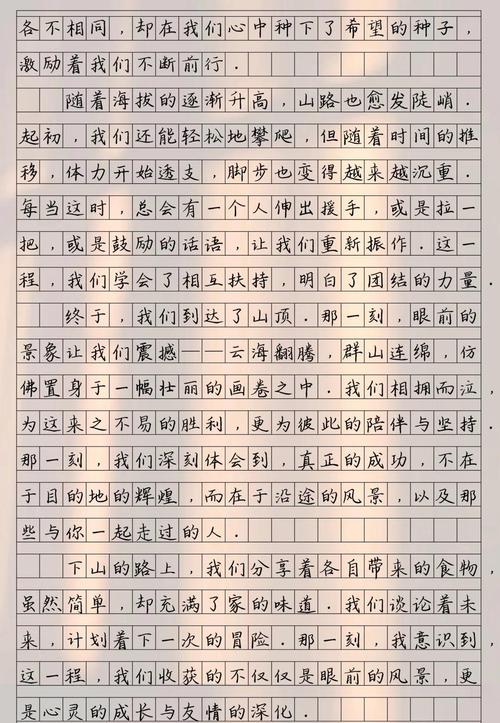 各不相同，却在我们心中种下了希望的种子，
激励着我们不断前行．
随着海拔的逐渐升高，山路也愈发陡峭．
起初，我们还能轻松地攀爬，但随着时间的推
移，体力开始透支，脚步也变得越来越沉重．
每当这时，总会有一个人伸出援手，或是拉一
把，或是鼓励的话语，让我们重新振作．这一
程，我们学会了相互扶持，明白了团结的力量．
终于，我们到达了山顶．那一刻，眼前的
景象让我们震撼——云海翻腾，群山连绵，仿
佛置身于一幅壮丽的画卷之中．我们相拥而泣，
为这来之不易的胜利，更为彼此的陪伴与坚持．
那一刻，我们深刻体会到，真正的成功，不在
于目的地的辉煌，而在于沿途的风景，以及那
些与你一起走过的人．
下山的路上，我们分享着各自带来的食物，
虽然简单，却充满了家的味道．我们谈论着未
来，计划着下一次的冒险．那一刻，我意识到，
这一程，我们收获的不仅仅是眼前的风景，更
是心灵的成长与友情的深化．